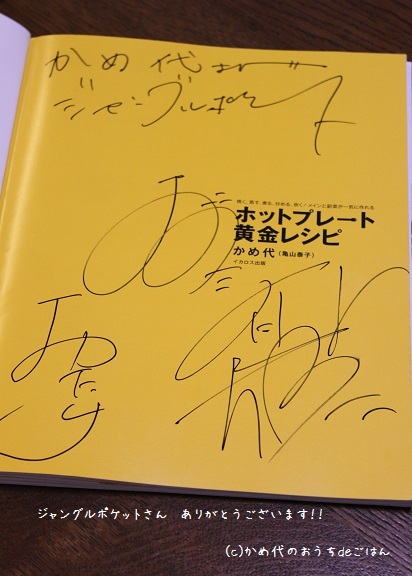 かめ代
ジャングルポケット
焼く、蒸す、煮る、炒める、炊く！メインと副菜が一気に作れる
ホットプレート
黄金レシピ
かめ代（亀山泰子）
イカロス出版
ジャングルポケットさん　ありがとうございます!!
(c)かめ代のおうちdeごはん